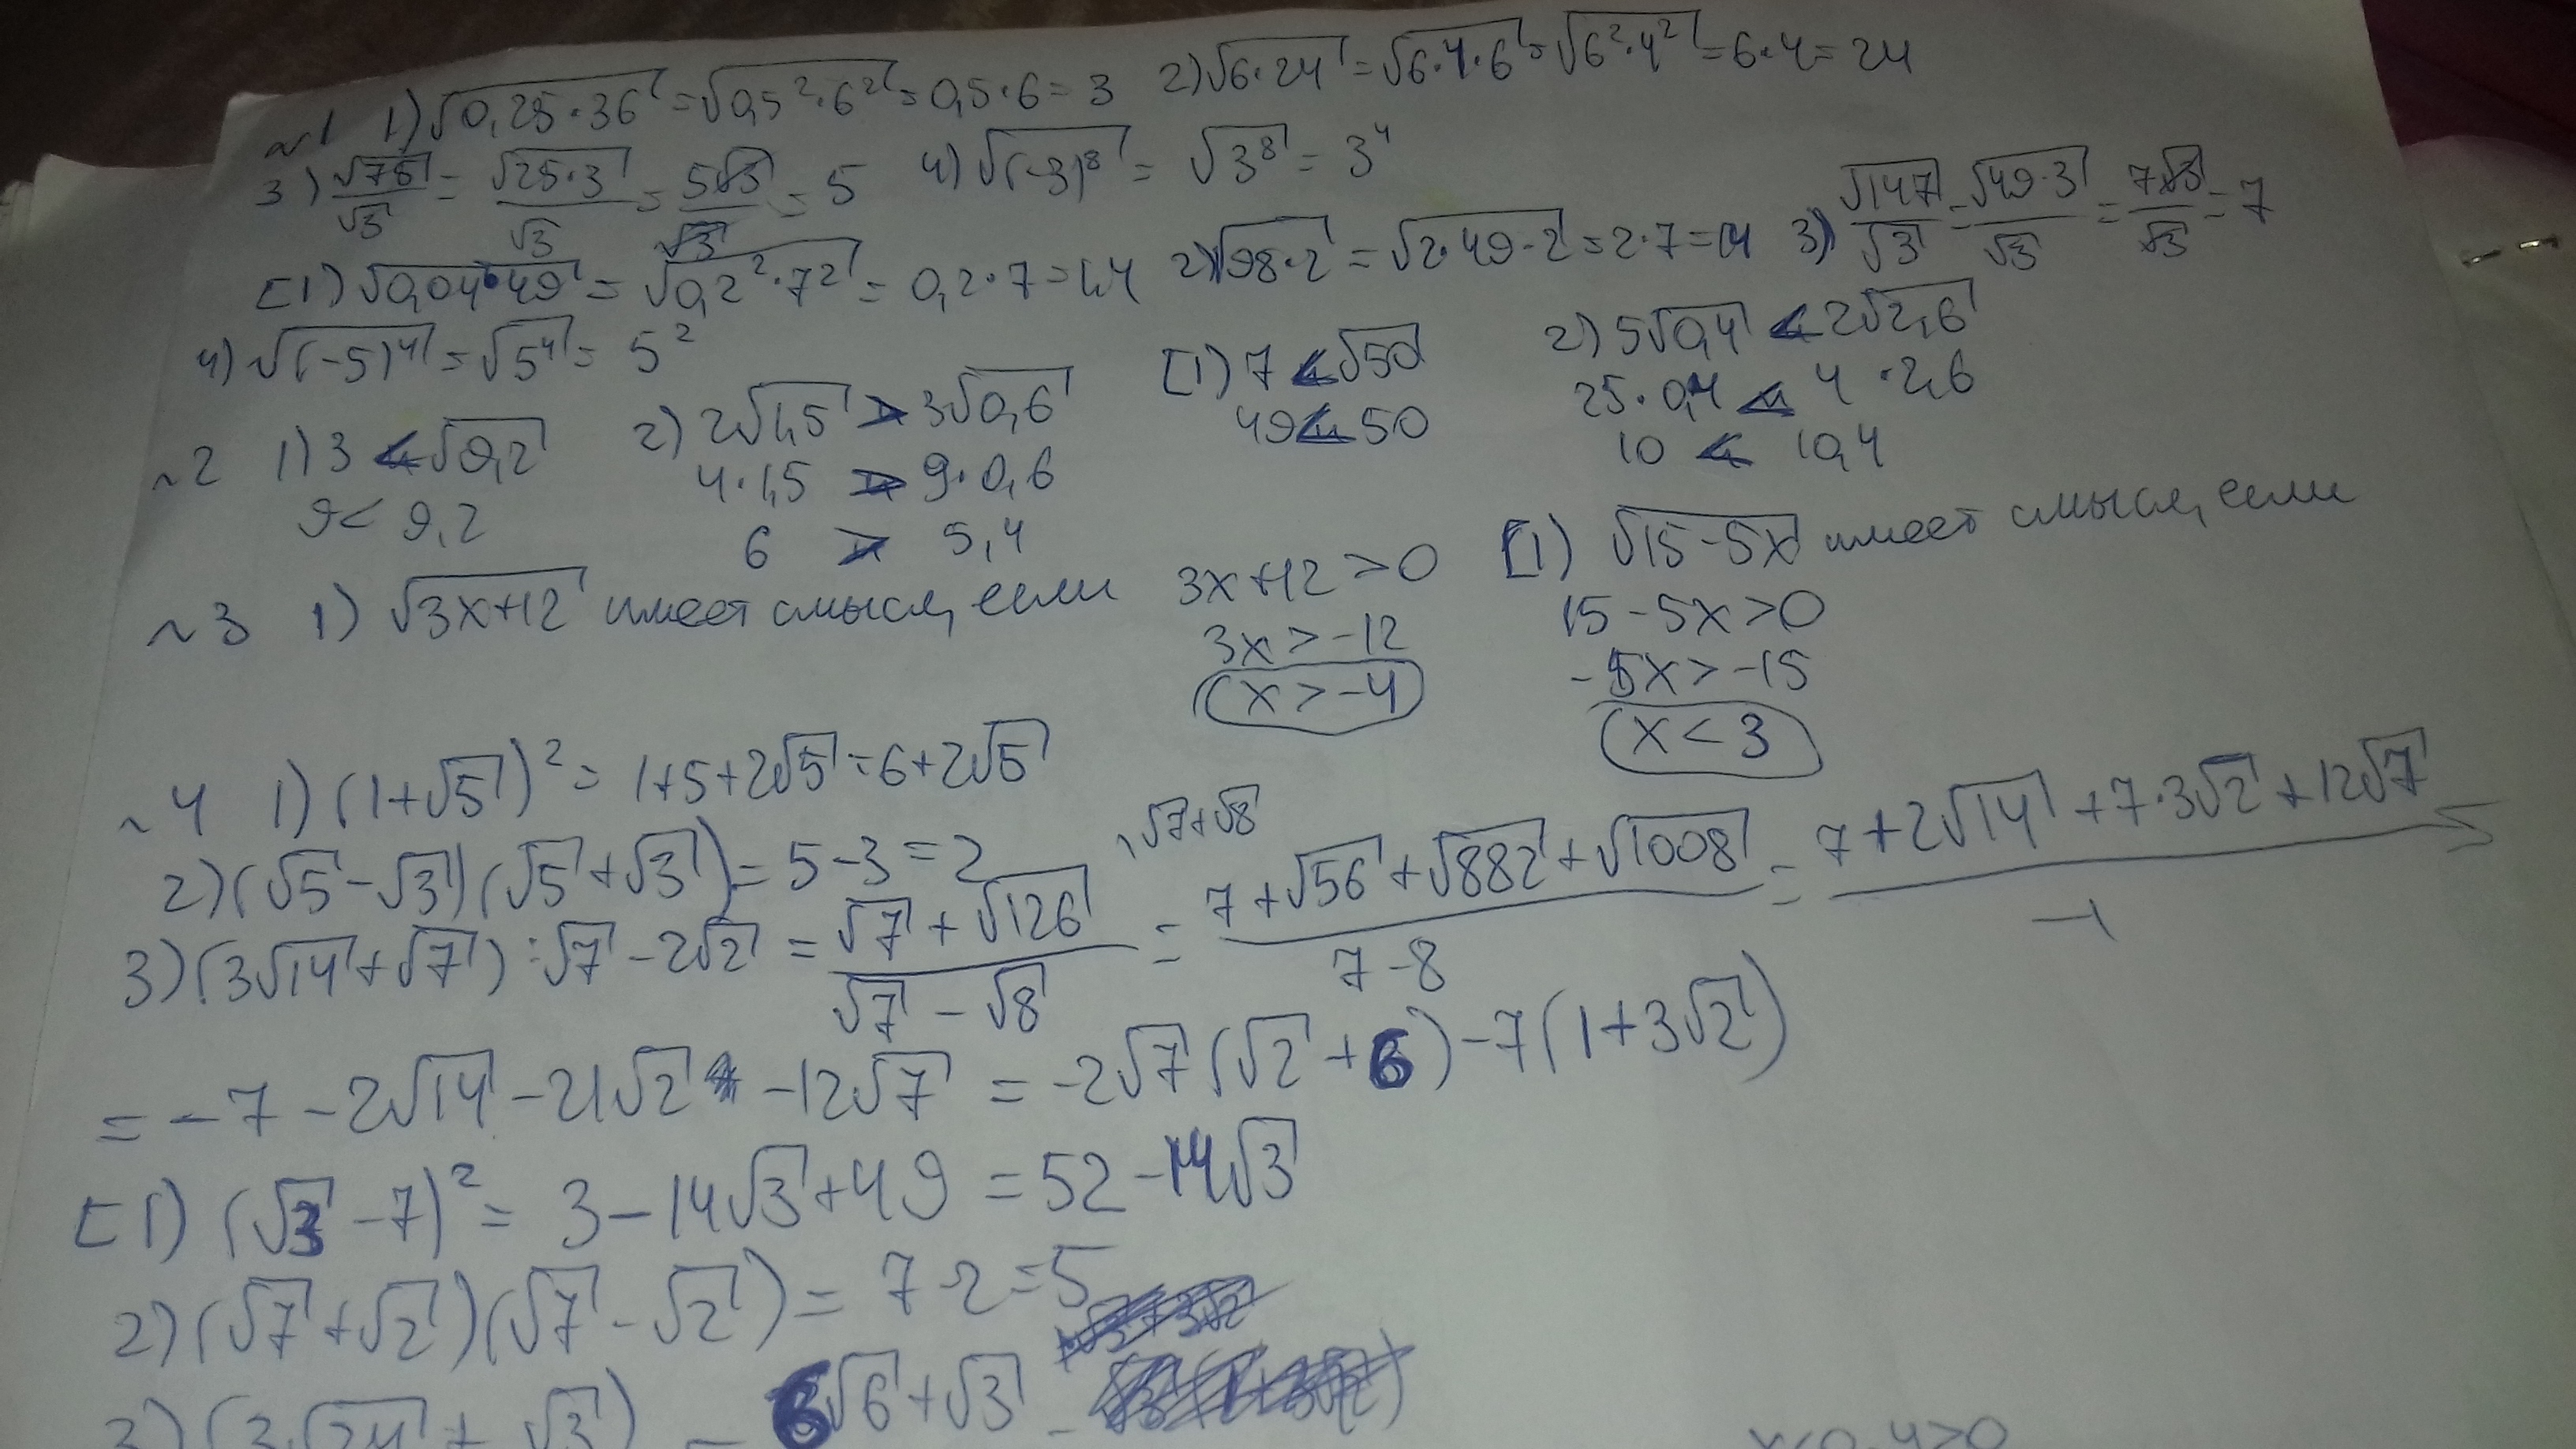 ~1 1) √0,25·36 = √0,5²·6² = 0,5·6 = 3 2) √6·24 = √6·4·6 = √6²·4² = 6·4 = 24
3) √75/√3 = √25·3/√3 = 5√3/√3 = 5 4) √(-3)⁸ = √3⁸ = 3⁴
[1) √0,04·49 = √0,2²·7² = 0,2·7 = 1,4 2) √98·2 = √2·49·2 = 2·7 = 14 3) √147/√3 = √49·3/√3 = 7√3/√3 = 7
4) √(-5)⁴ = √5⁴ = 5²
~2 1) 3 < √9,2 2) 2√1,5 > 3√0,6 [1) 7 < √50 2) 5√0,4 < 2√2,6
9 < 9,2 4·1,5 > 9·0,6 49 < 50 25·0,4 < 4·2,6
6 > 5,4 10 < 10,4
~3 1) √3x+12 имеет смысл, если 3x+12 > 0 [1) √15-5x имеет смысл, если
3x > -12 15-5x > 0
x > -4 -5x > -15
x < 3
~4 1) (1+√5)² = 1+5+2√5 = 6+2√5
2) (√5-√3)(√5+√3) = 5-3 = 2
3) (3√14+√7) : √7-2√2 = (√7+√126)/(√7-√8) \√7+√8 = (7+√56+√882+√1008)/(7-8) = (7+2√14+7·3√2+12√7)/-1
= -7-2√14-21√2-12√7 = -2√7(√2+6)-7(1+3√2)
[1) (√3-7)² = 3-14√3+49 = 52-14√3
2) (√7+√2)(√7-√2) = 7-2 = 5
3) (3√24+√3) = 6√6+√3